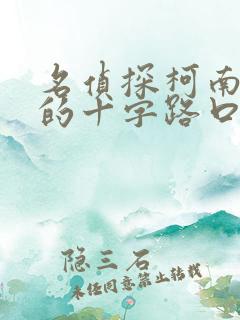 名侦探柯南
的十字路口
隐三石
未经同意禁止转载